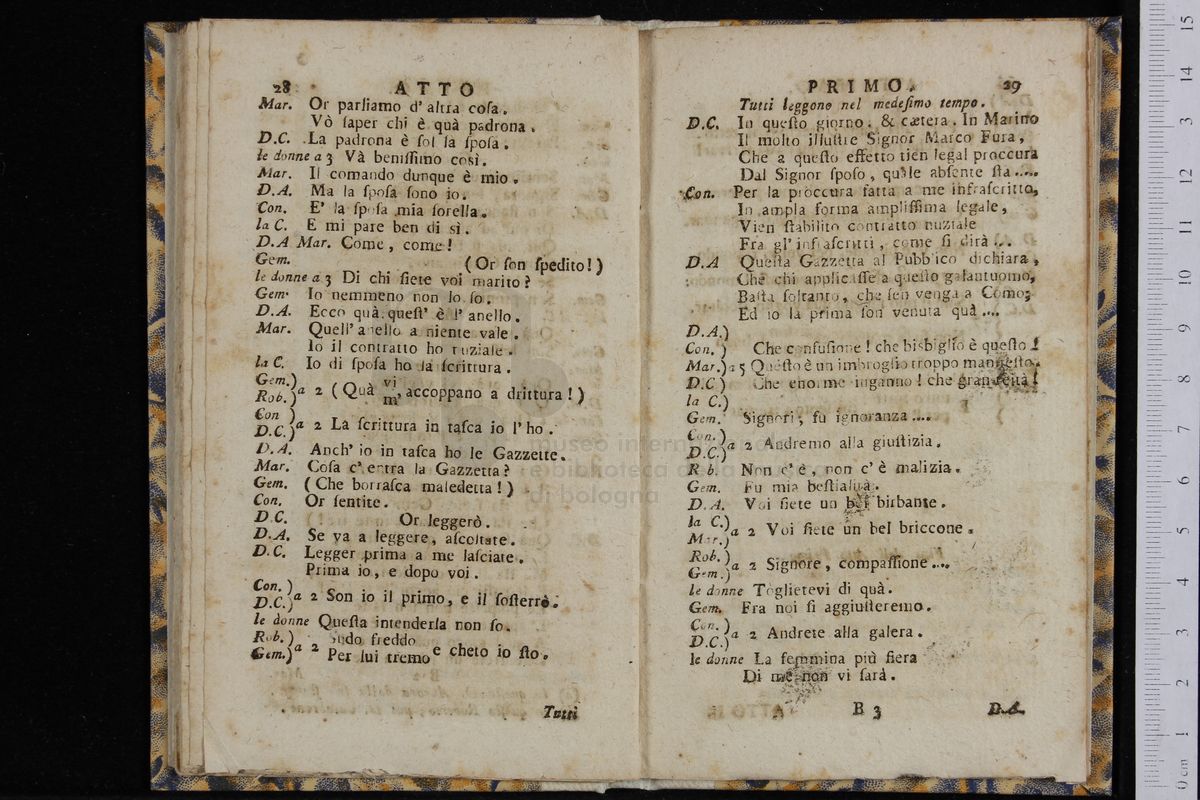 28 ATTO
Mar. Or parliamo d' altra coſa.
Vò ſaper chi è quà padrona.
D.C. La padrona è ſol la ſpoſa.
le donne a 3 Và beniſſimo così.
Mar. Il comando dunque è mio.
D.A. Ma la ſpoſa ſono io.
Con. E' la ſpoſa mia ſorella.
la C. E mi pare ben di sì.
D.A Mar. Come, come!
Gem. (Or ſon ſpedito!)
le donne a 3 Di chi ſiete voi marito?
Gem. Io nemmeno non lo ſo.
D.A. Ecco quà queſt' è l' anello.
Mar. Quell' anello a niente vale.
Io il contratto ho nuziale.
la C. Io di ſpoſa ho la ſcrittura.
Gem.) Rob.) a 2 (Quà vi m' accoppano a drittura!)
Con ) D.C.) a 2 La ſcrittura in taſca io l' ho.
D.A. Anch' io in taſca ho le Gazzette.
Mar. Coſa c' entra la Gazzetta?
Gem. (Che borraſca maledetta!)
Con. Or ſentite.
D.C. Or leggerò.
D.A. Se va a leggere, aſcoltate.
D.C. Legger prima a me laſciate.
Prima io, e dopo voi.
Con. ) D.C.) a 2 Son io il primo, e il ſoſterrò.
le donne Queſta intenderla non ſo.
Rob. ) Gem.) a 2 freddo Per lui tremo e cheto io ſto.
Tutti
PRIMO. 29
Tutti leggono nel medeſimo tempo.
D.C. In queſto giorno. & cætera. In Marino
Il molto illuſtre Signor Marco Fura,
Che a queſto effetto tien legal proccura
Dal Signor ſpoſo, quale abſente ſta....
Con. Per la proccura fatta a me infraſcritto,
In ampla forma ampliſſima legale,
Vien ſtabilito contratto nuziale
Fra gl' infraſcritti, come ſi dirà...
D.A Queſta Gazzetta al Pubblico dichiara,
Che chi applicaſſe a queſto galantuomo,
Baſta ſoltanto, che ſen venga a Como;
Ed io la prima ſon venuta quà....
D.A.)
Con. ) Che confuſione! che bisbiglio è queſto!
Mar.) a 5 Queſto è un imbroglio troppo manifeſto.
D.C ) Che enorme inganno! che
la C.)
Gem. Signori, fu ignoranza....
Con. ) D.C.) a 2 Andremo alla giuſtizia.
R b. Non c' è, non c' è malizia.
Gem. Fu mia beſtialità.
D.A. Voi ſiete un bel birbante.
la C.) Mar.) a 2 Voi ſiete un bel briccone.
Rob. ) Gem.) a 2 Signore, compaſſione....
le donne Toglietevi di quà.
Gem. Fra noi ſi aggiuſteremo.
Con. ) D.C.) a 2 Andrete alla galera.
le donne La femmina più fiera
Di me non vi ſarà.
B 3 D.A.
museo
biblioteca
di bologna